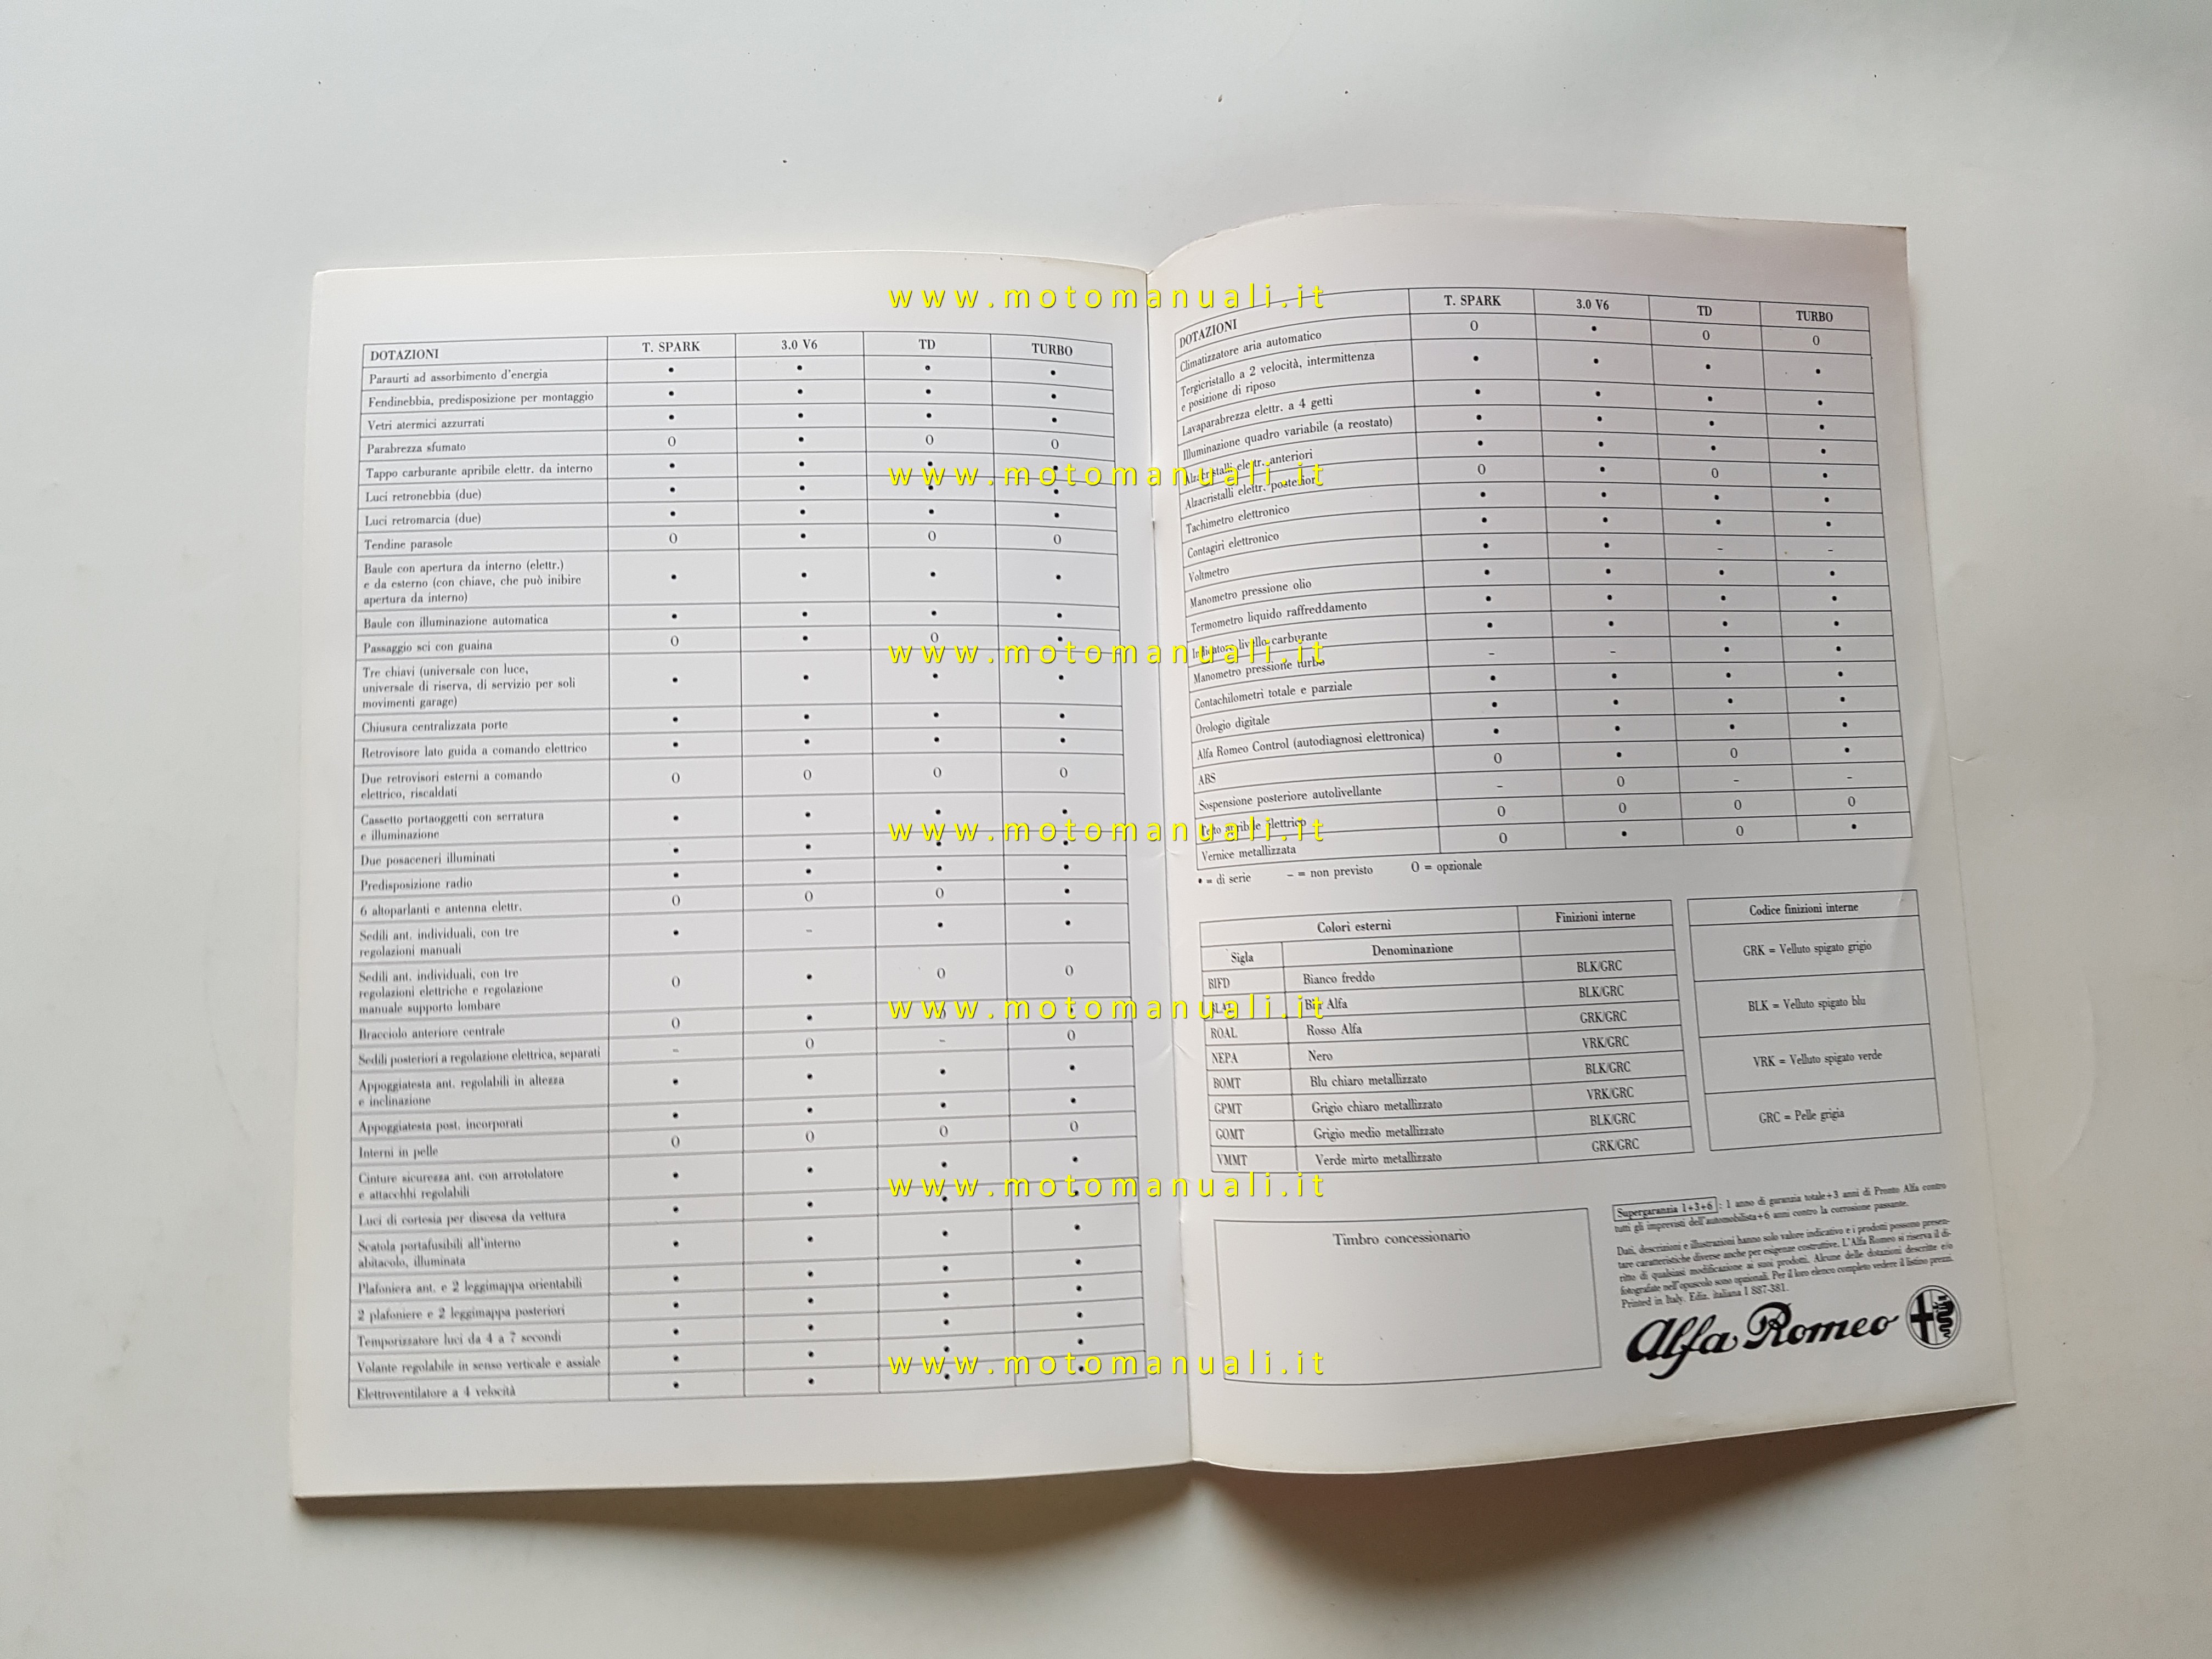 DOTAZIONI T. SPARK 3.0 V6 TD TURBO
Paraurti ad assorbimento d'energia • • • •
Fendinebbia, predisposizione per montaggio • • • •
Vetri atermici azzurrati • • • •
Parabrezza sfumato O • O O
Tappo carburante apribile elettr. da interno • • • •
Luci retronebbia (due) • • • •
Luci retromarcia (due) • • • •
Tendine parasole O • O O
Baule con apertura da interno (elettr.)
e da esterno (con chiave, che può inibire
apertura da interno) • • • •
Baule con illuminazione automatica • • • •
Passaggio sci con guaina O • O •
Tre chiavi (universale con luce,
universale di riserva, di servizio per soli
movimenti garage) • • • •
Chiusura centralizzata porte • • • •
Retrovisore lato guida a comando elettrico • • • •
Due retrovisori esterni a comando
elettrico, riscaldati O O O O
Cassetto portaoggetti con serratura
e illuminazione • • • •
Due posaceneri illuminati • • • •
Predisposizione radio • • • •
6 altoparlanti e antenna elettr. O O O •
Sedili ant. individuali, con tre
regolazioni manuali • – • •
Sedili ant. individuali, con tre
regolazioni elettriche e regolazione
manuale supporto lombare O • O O
Bracciolo anteriore centrale O •
Sedili posteriori a regolazione elettrica, separati – O – O
Appoggiatesta ant. regolabili in altezza
e inclinazione • • • •
Appoggiatesta post. incorporati • • • •
Interni in pelle O O O O
Cinture sicurezza ant. con arrotolatore
e attacchhi regolabili • • • •
Luci di cortesia per discesa da vettura • • • •
Scatola portafusibili all'interno
abitacolo, illuminata • • • •
Plafoniera ant. e 2 leggimappa orientabili • • • •
2 plafoniere e 2 leggimappa posteriori • • • •
Temporizzatore luci da 4 a 7 secondi • • • •
Volante regolabile in senso verticale e assiale • • • •
Elettroventilatore a 4 velocità • • • •
DOTAZIONI T. SPARK 3.0 V6 TD TURBO
Climatizzatore aria automatico O • O O
Tergicristallo a 2 velocità, intermittenza
e posizione di riposo • • • •
Lavaparabrezza elettr. a 4 getti • • • •
Illuminazione quadro variabile (a reostato) • • • •
Alzacristalli elettr. anteriori • • • •
Alzacristalli elettr. posteriori O • O •
Tachimetro elettronico • • • •
Contagiri elettronico • • • •
Voltmetro • • – –
Manometro pressione olio • • • •
Termometro liquido raffreddamento • • • •
Indicatore livello carburante • • • •
Manometro pressione turbo – – • •
Contachilometri totale e parziale • • • •
Orologio digitale • • • •
Alfa Romeo Control (autodiagnosi elettronica) • • • •
ABS O • O •
Sospensione posteriore autolivellante – O – –
Tetto apribile elettrico O O O O
Vernice metallizzata O • O •
• = di serie – = non previsto O = opzionale
Colori esterni Finizioni interne
Sigla Denominazione
BIFD Bianco freddo BLK/GRC
Blu Alfa BLK/GRC
ROAL Rosso Alfa GRK/GRC
NEPA Nero VRK/GRC
BOMT Blu chiaro metallizzato BLK/GRC
GPMT Grigio chiaro metallizzato VRK/GRC
GOMT Grigio medio metallizzato BLK/GRC
VMMT Verde mirto metallizzato GRK/GRC
Codice finizioni interne
GRK = Velluto spigato grigio
BLK = Velluto spigato blu
VRK = Velluto spigato verde
GRC = Pelle grigia
Timbro concessionario
Supergaranzia 1+3+6 : 1 anno di garanzia totale+3 anni di Pronto Alfa contro
tutti gli imprevisti dell'automobilista+6 anni contro la corrosione passante.
Dati, descrizioni e illustrazioni hanno solo valore indicativo e i prodotti possono presen-
tare caratteristiche diverse anche per esigenze costruttive. L'Alfa Romeo si riserva il di-
ritto di qualsiasi modificazione ai suoi prodotti. Alcune delle dotazioni descritte e/o
fotografate nell'opuscolo sono opzionali. Per il loro elenco completo vedere il listino prezzi.
Printed in Italy. Ediz. italiana I 887-381.
Alfa Romeo
www.motomanuali.it
www.motomanuali.it
www.motomanuali.it
www.motomanuali.it
www.motomanuali.it
www.motomanuali.it
www.motomanuali.it